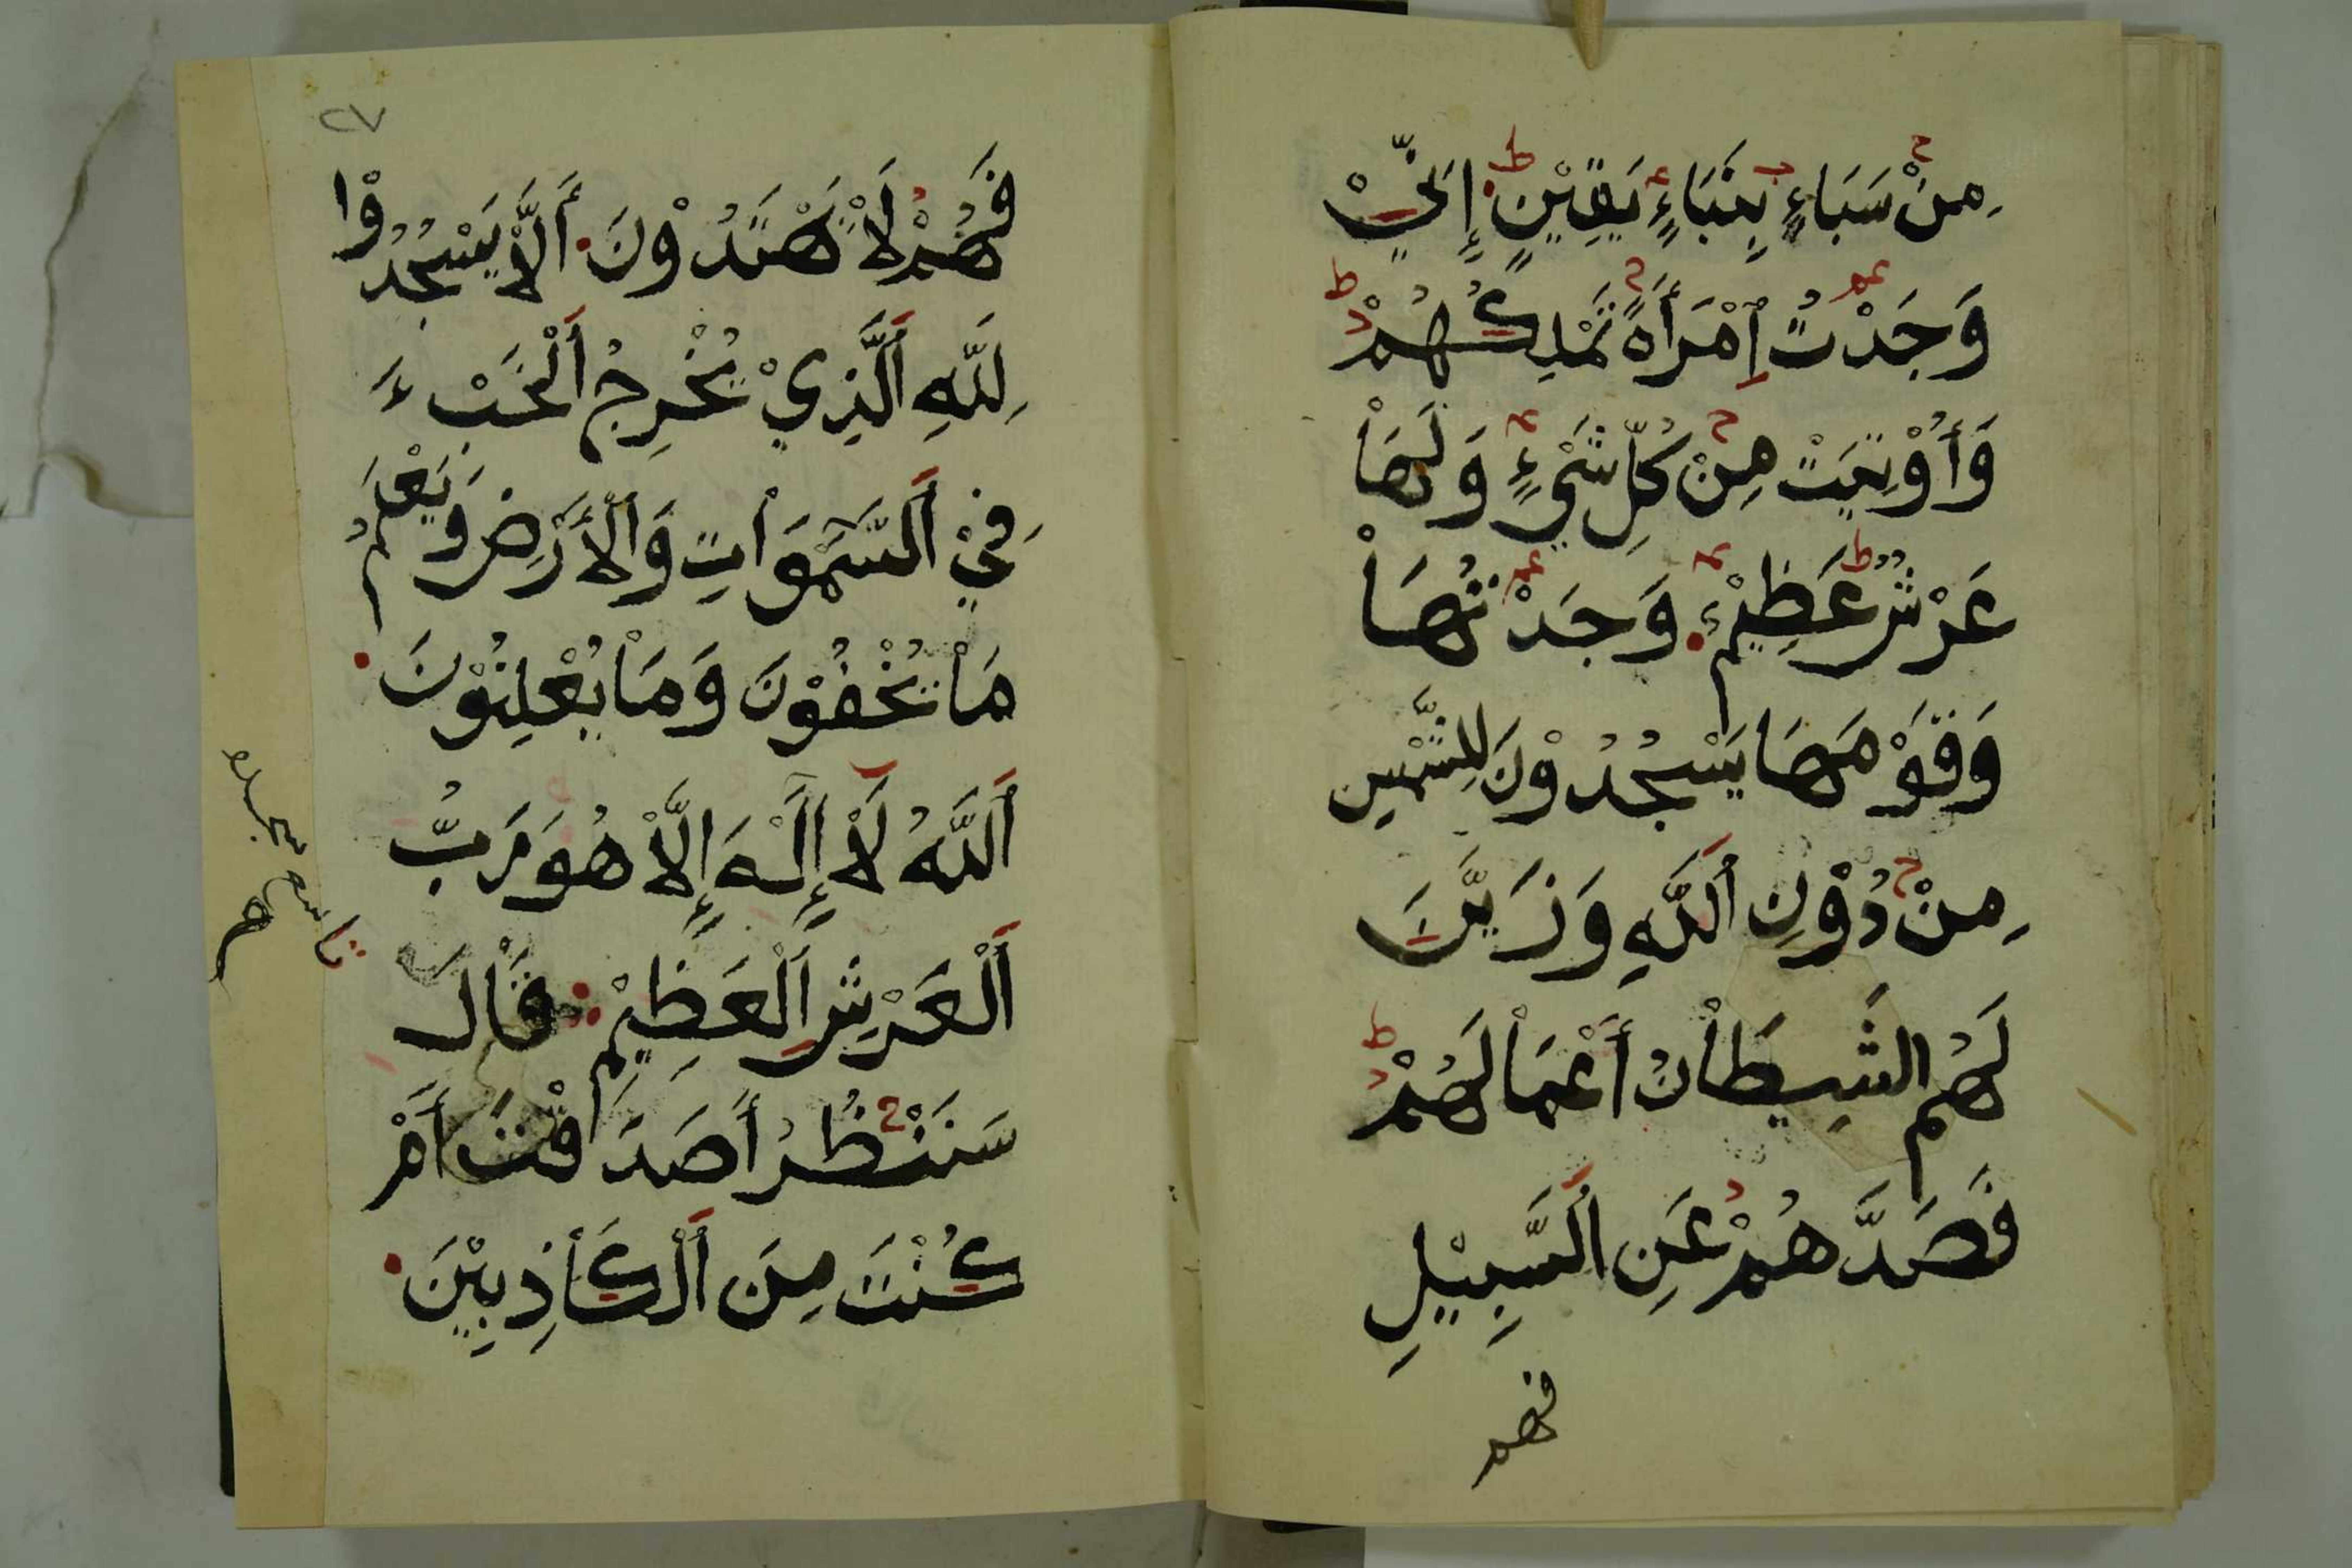 مِنْ سَبَاءٍ بِنَبَاءٍ يَقِيْنٍ إِنِّيْ
وَجَدْتُ اِمْرَأَةً تَمْلِكُهُمْ
وَأُوْتِيَتْ مِنْ كُلِّ شَيْءٍ وَلَهَاْ
عَرْشٌ عَظِيْمٌ وَجَدْتُهَاْ
وَقَوْمَهَا يَسْجُدُوْنَ لِلشَّمْسِ
مِنْ دُوْنِ اَللَّهِ وَزَيَّنَ
لَهُم الشَيِطَاْنُ أَعْمَاْلَهُمْ
فَصَدَّهُمْ عَنِ اَلسَّبِيْلِ
فهم
٢٧
فَهُمْ لَاْ يَهْتَدُوْنَ أَلَّاْ يَسْجُدُوْا
لِلَّهِ اَلَّذِيْ يُخْرِجُ اَلْخَبْءَ
فِيْ اَلسَّمَوَاْتِ وَاَلْأَرْضِ وَيَعْلَمُ
مَاْ يُخْفُوْنَ وَمَاْ يُعْلِنُوْنَ
اَللَّهُ لَاْ إِلَهَ إِلَّاْ هُوَ رَبُّ
اَلْعَرْشِ اَلْعَظِيْمِ قَاْلَ
سَنَنْظُرُ أَصَدَقْتَ أَمْ
كُنْتَ مِنَ اَلْكَاْذِبِيْنَ